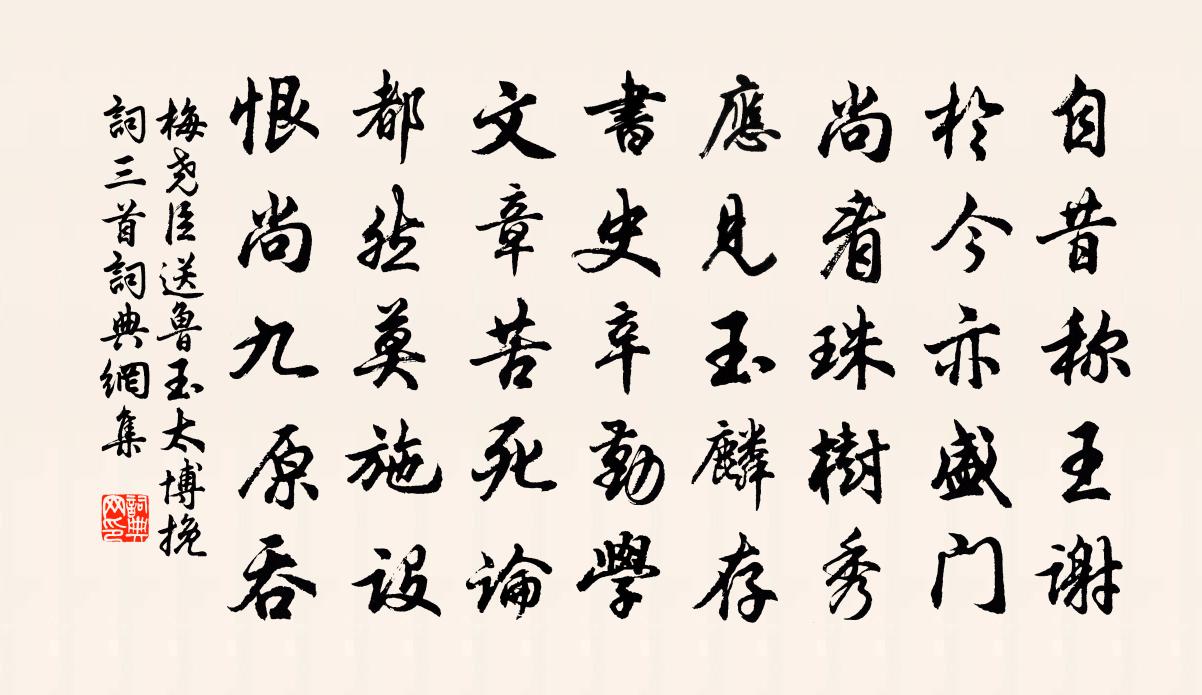 自昔称王谢
於今亦盛门
尚看珠樹秀
應見玉麟存
書史辛勤學
文章苦死論
都然莫施設
恨尚九原吞
梅尧臣送鲁玉太博挽
詞三首詞典網集
詞典
网印